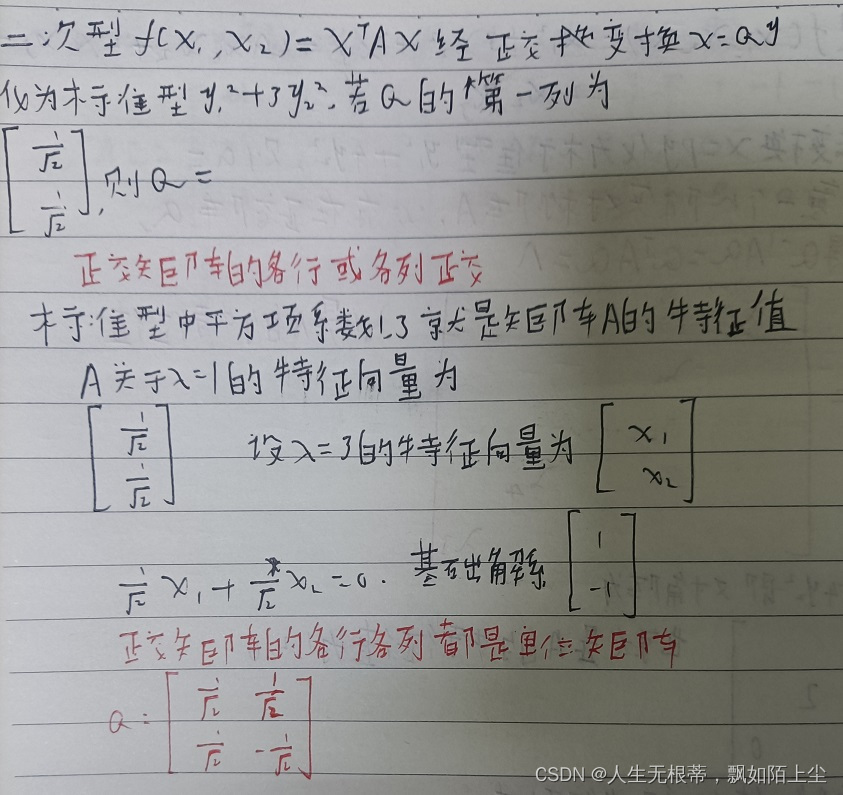 二次型 f(x₁,x₂)=xᵀAx 经正交变换 x=Qy
化为标准型 y₁²+3y₂². 若Q的第一列为
[1/√2
1/√2], 则Q=
正交矩阵的各行或各列正交
标准型中平方项系数1、3就是矩阵A的特征值
A关于λ=1的特征向量为
[1/√2
1/√2] 设λ=3的特征向量为 [x₁
x₂]
1/√2 x₁ + 1/√2 x₂ = 0. 基础解系 [1
-1]
正交矩阵的各行各列都是单位矩阵
Q= [1/√2 1/√2
1/√2 -1/√2]
CSDN @人生无根蒂，飘如陌上尘